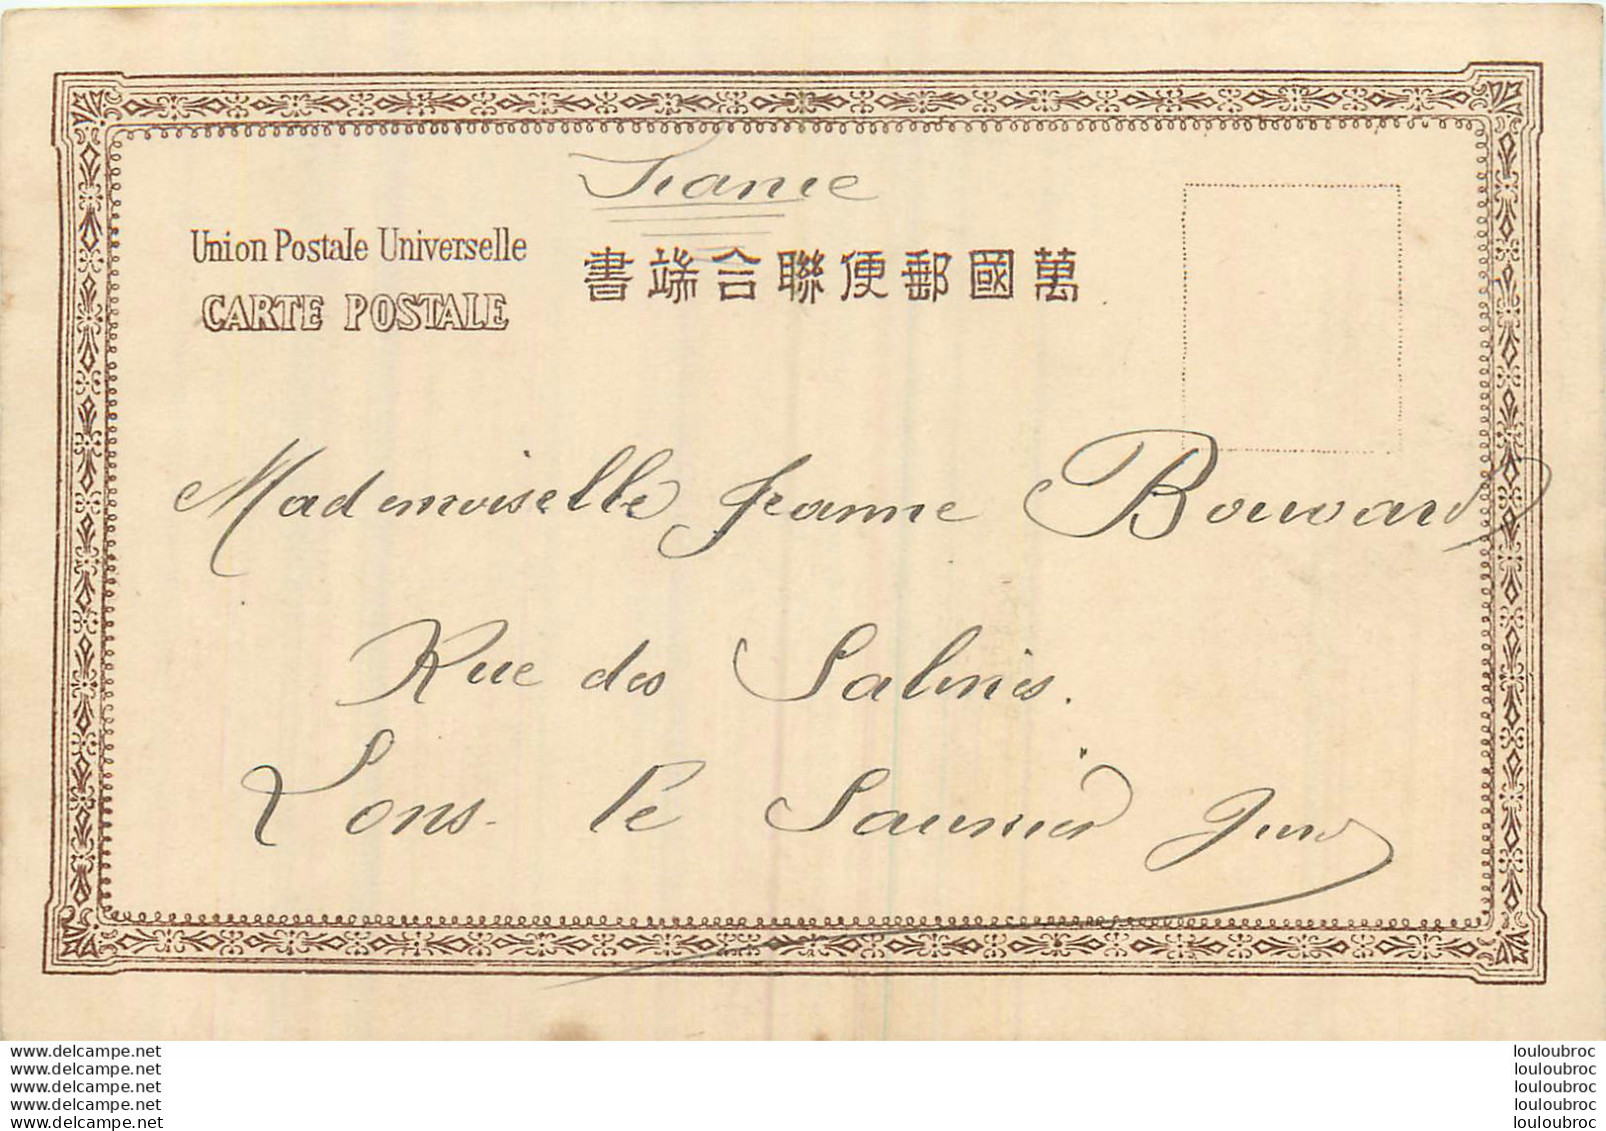 France
Union Postale Universelle
書端合聯便郵國萬
CARTE POSTALE
Mademoiselle Jeanne Bouvard
Rue des Salines.
Lons-le Saunier Jura
www.delcampe.net
www.delcampe.net
www.delcampe.net
www.delcampe.net
www.delcampe.net
louloubroc
louloubroc
louloubroc
louloubroc
louloubroc